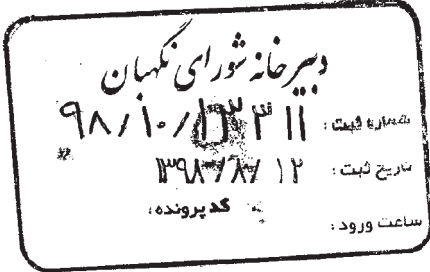 دبیرخانه شورای نگهبان
شماره ثبت: ۹۸/۱۰/۱۳۳۱۱
تاریخ ثبت: ۱۳۹۸/۸/۱۲
کد پرونده:
ساعت ورود: